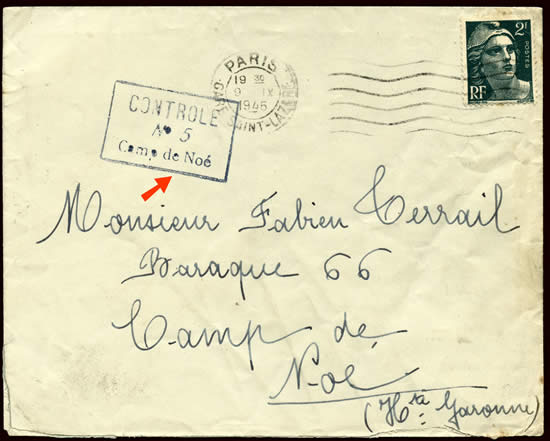 PARIS
19 30
9 IX
1945
GARE SAINT-LAZARE
2F
POSTES
RF
CONTROLE
No 5
Camp de Noé
Monsieur Fabien Terrail
Baraque 66
Camp de
Noé
(Hte Garonne)